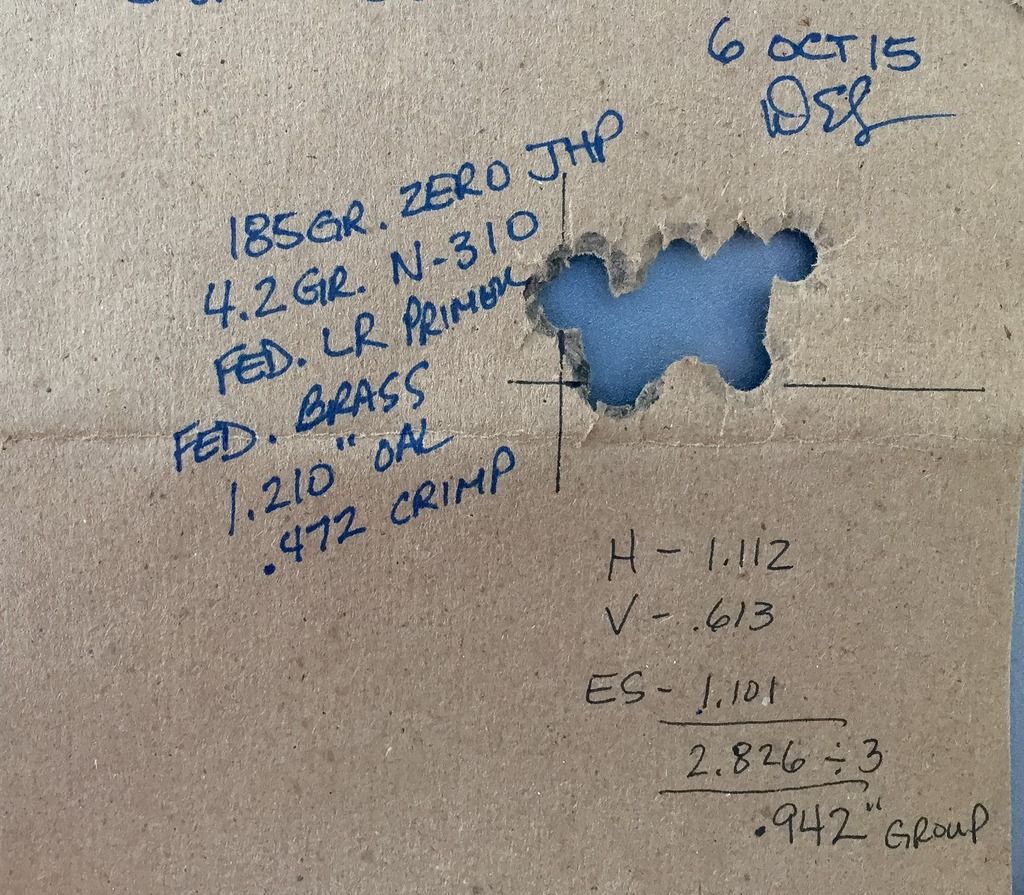 6 OCT 15
185GR. ZERO JHP
4.2GR. N-310
FED. LR PRIMER
FED. BRASS
1.210" OAL
.472 CRIMP
H - 1.112
V - .613
ES - 1.101
2.826 ÷ 3
.942" GROUP